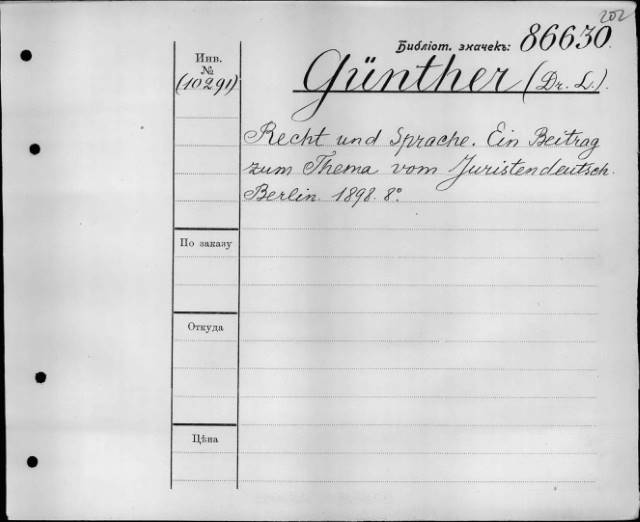 202
Библіот. значекъ: 86630.
Инв.
№
(10291)
Günther (Dr. L.).
Recht und Sprache. Ein Beitrag
zum Thema vom Juristendeutsch.
Berlin. 1898. 8°.
По заказу
Откуда
Цѣна